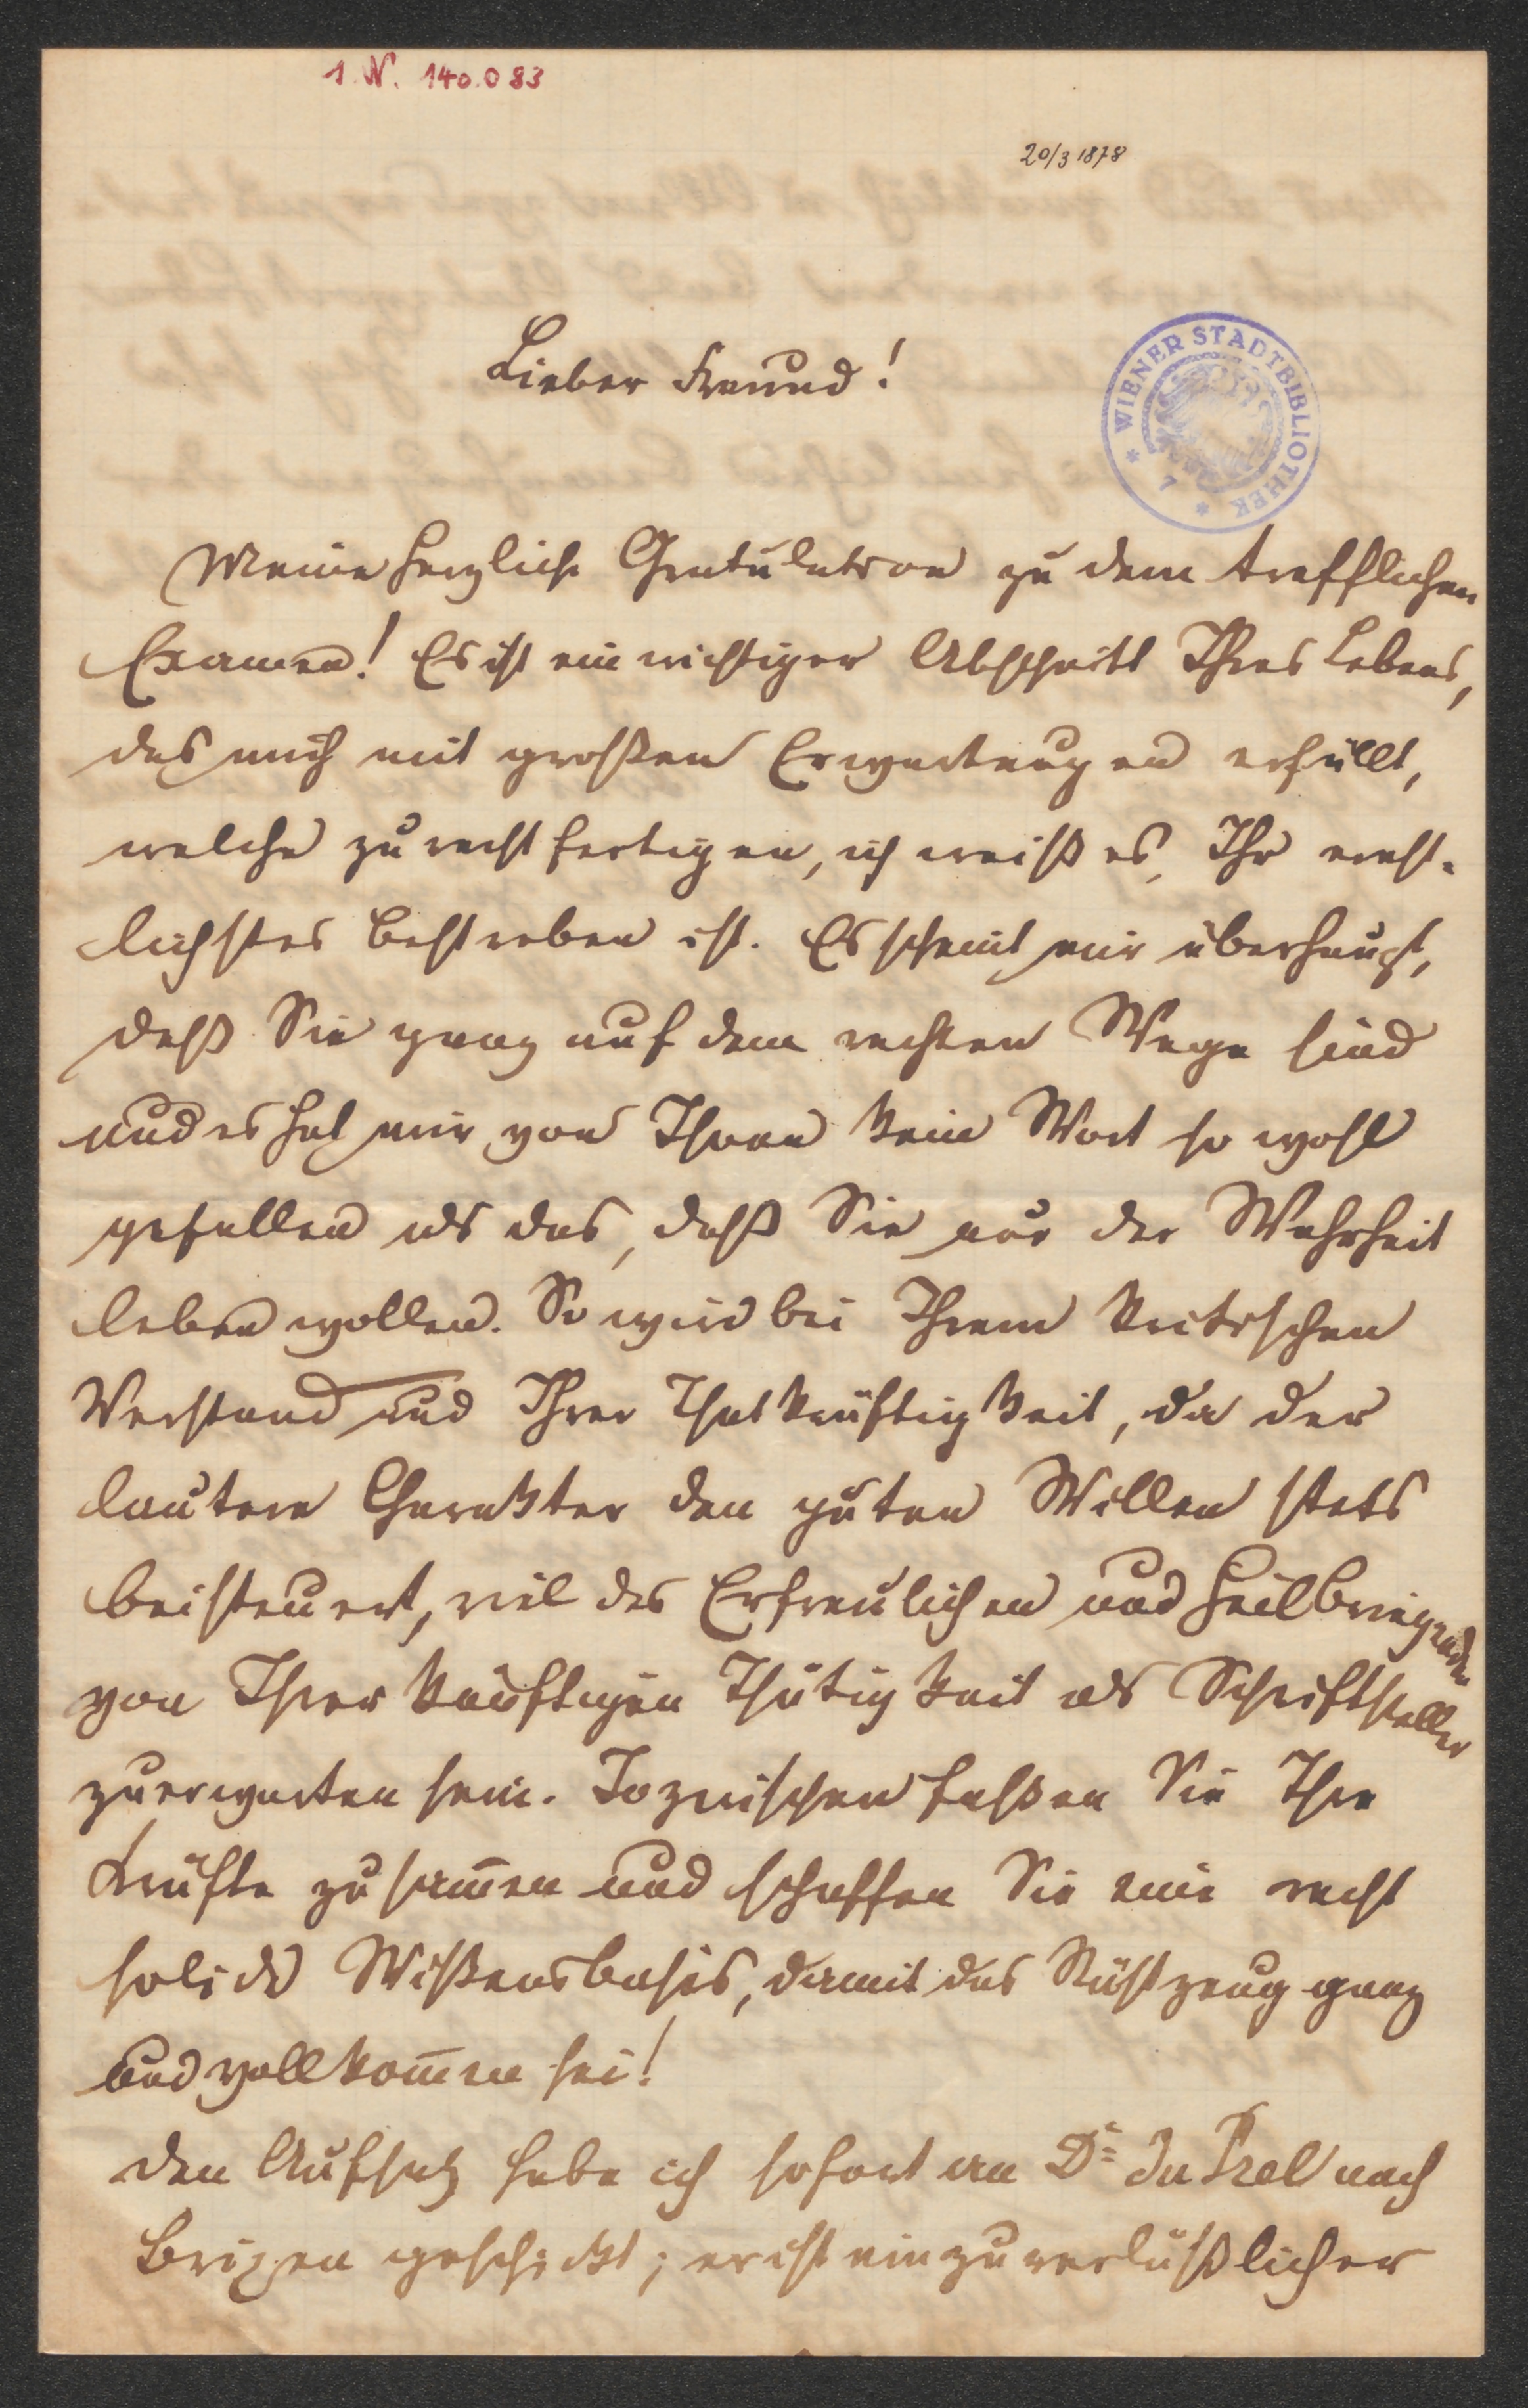 I. N. 140.083
20/3 1878
WIENER STADTBIBLIOTHEK
Lieber Freund!
Meine herzliche Gratulation zu dem trefflichen
Examen! Es ist ein wichtiger Abschnitt Ihres Lebens,
das mich mit großen Erwartungen erfüllt,
welche zu rechtfertigen, ich weiß es, Ihr ernst-
lichstes Bestreben ist. Es scheint mir überhaupt,
daß Sie ganz auf dem rechten Wege sind
und es hat mir von Ihnen kein Wort so wohl
gefallen als das, daß Sie nur der Wahrheit
leben wollen. So wird bei Ihrem kritischen
Verstand und Ihrer Thatkräftigkeit, da der
lautere Charakter den guten Willen stets
beisteuert, viel des Erfreulichen und Heilbringenden
von Ihrer künftigen Thätigkeit als Schriftsteller
zu erwarten sein. Inzwischen faßen Sie Ihre
Kräfte zusam̄en und schaffen Sie eine recht
solide Wißensbasis, damit das Rüstzeug ganz
und vollkom̄en sei!
Den Aufsatz habe ich sofort an Dr. Du Prel nach
Brixen geschickt; er ist ein zuverläßlicher